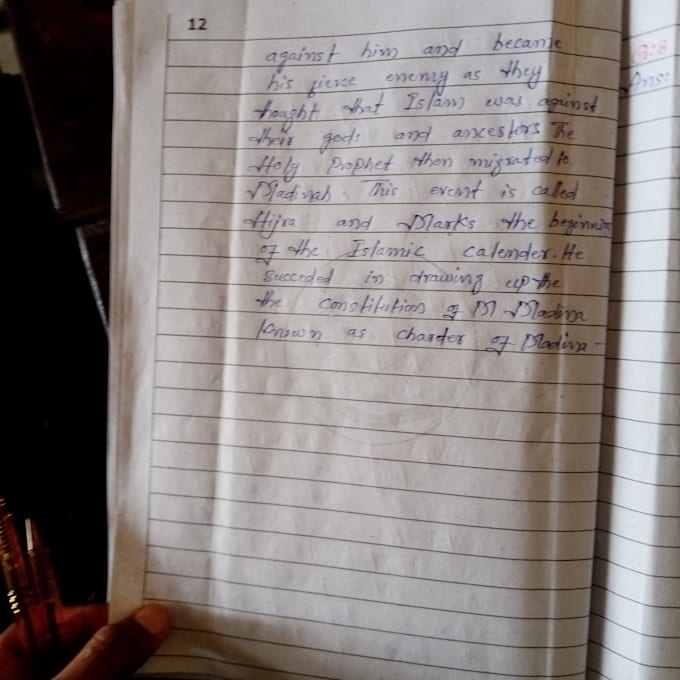 12
against him and became
his fierce enemy as they
thought that Islam was against
their gods and ancestors The
Holy Prophet then migrated to
Madinah. This event is called
Hijra and Marks the beginning
of the Islamic calender. He
succeded in drawing up the
the constitution of M Madina
known as charter of Madina-
Q:8
Ans: